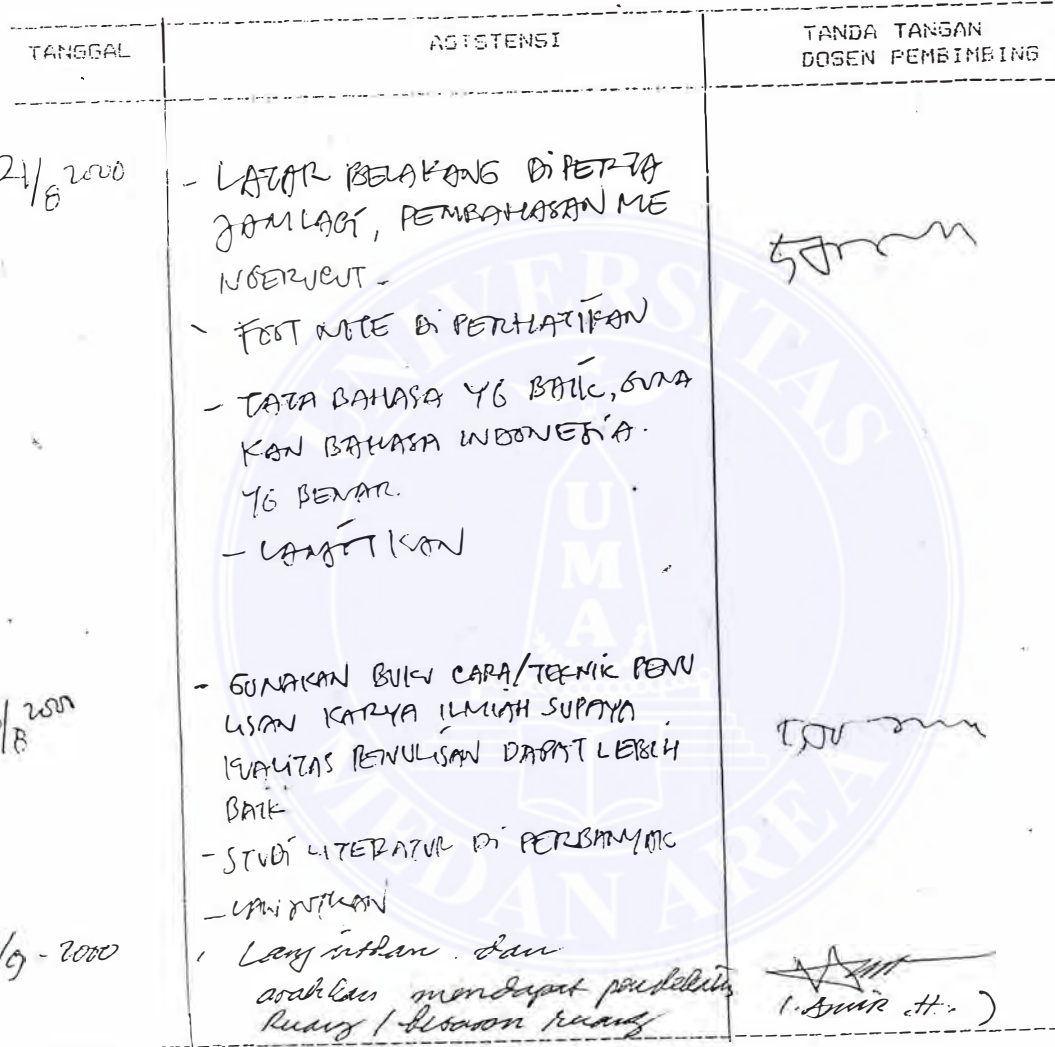 TANGGAL
ASISTENSI
TANDA TANGAN
DOSEN PEMBIMBING
21/8 2000
- LATAR BELAKANG DIPERTA
JAM LAGI, PEMBAHASAN ME
NGERUCUT -
- FOOT NOTE DI PERHATIKAN
- TATA BAHASA YG BAIK, GUNA
KAN BAHASA INDONESIA
YG BENAR.
- LANJUTKAN
/8 2000
- GUNAKAN BUKU CARA/TEKNIK PENU
LISAN KARYA ILMIAH SUPAYA
KUALITAS PENULISAN DAPAT LEBIH
BAIK
- STUDI LITERATUR DI PERBANYAK
- LANJUTKAN
/9 - 2000
Lanjutkan dan
arahkan mendapat
Ruang / besaran ruang
UNIVERSITAS
MEDAN AREA
UMA